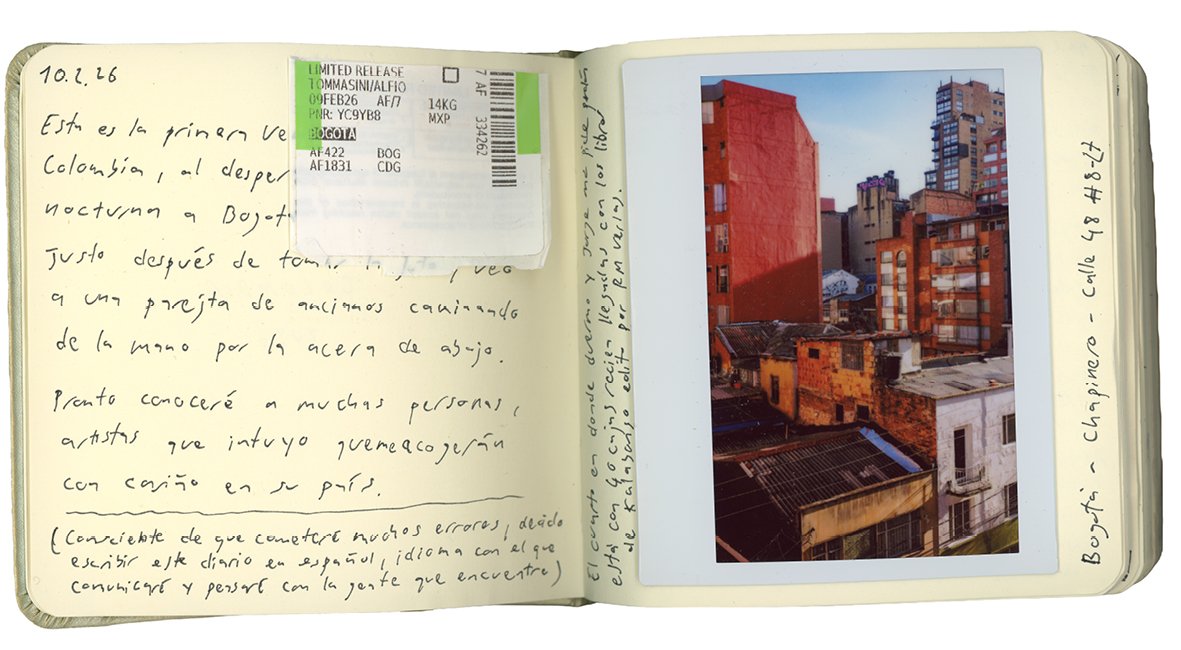 10.2.26
Esta es la primera ve
Colombia, al desper
nocturna a Bogot
Justo después de tomar la foto, veo
a una parejita de ancianos caminando
de la mano por la acera de abajo.
Pronto conoceré a muchas personas,
artistas que intuyo que me acogerán
con cariño en su país.
(Consciente de que cometeré muchos errores, decido
escribir este diario en español, idioma con el que
comunicaré y pensaré con la gente que encuentre)
LIMITED RELEASE
TOMMASINI/ALFIO
09FEB26 AF/7 14KG
PNR: YC9YB8 MXP
BOGOTA
AF422 BOG
AF1831 CDG
7 AF 334262
El cuarto en donde duermo y Jorge me hospeda
está con 40 cajas recién llegadas con los libros
de edit por RM
Bogotá - Chapinero - Calle 48 #8-27